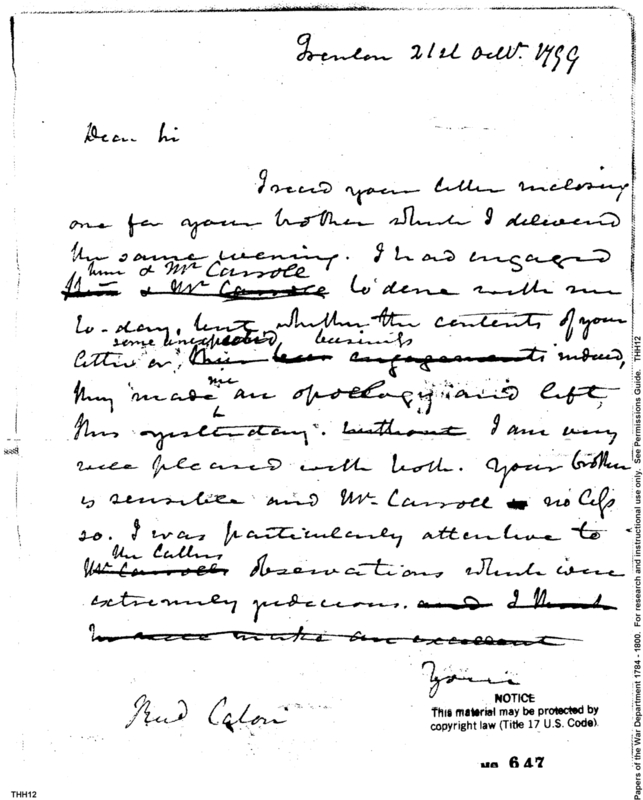 Trenton 21st Octr. 1799
Dear Sir
I recd your letter inclosing
one for your brother which I delivered
the same evening. I had engaged
him & Mr Carroll
him & Mr Carroll to dine with me
to-day, but whether the contents of your
some unexpected business
letter or their engagements induced,
me
they made an apology and left
this yesterday. without I am very
well pleased with both. Your brother
is sensible and Mr. Carroll no less
so. I was particularly attentive to
the
Mr Carrolls observations which were
extremely judicious. and I think
he will make an excellent
Yours
Caton
NOTICE
This material may be protected by
copyright law (Title 17 U.S. Code).
NO 647
THH12
Papers of the War Department 1784 - 1800. For research and instructional use only. See Permissions Guide. THH12